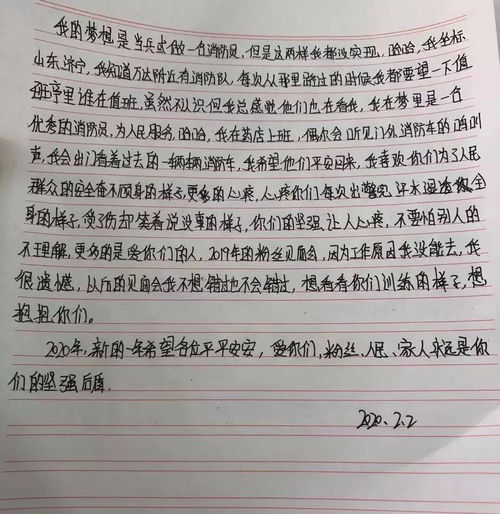 我的梦想是当兵或做一名消防员，但是这两样我都没实现，哈哈，我坐标
山东济宁，我知道万达附近有消防队，每次从那里路过的时候我都要望一下值
班亭里谁在值班，虽然不认识但我总感觉他们也在看我，我在梦里是一名
优秀的消防员，为人民服务，哈哈，我在药店上班，偶尔会听见门外消防车的鸣叫
声，我会出门看着过去的一辆辆消防车，我希望他们平安回来，我喜欢你们为了人民
群众的安全奋不顾身的样子，更多的心疼，心疼你们每次出警完汗水湿透全
身的样子，受伤却笑着说没事的样子，你们的坚强让人心疼，不要怕别人的
不理解，更多的是爱你们的人，2019年的粉丝见面会，因为工作原因我没能去，我
很遗憾，以后的见面会我不想错过也不会错过，想看看你们训练的样子，想
抱抱你们。
2020年，新的一年希望各位平平安安，爱你们，粉丝、人民、家人永远是你
们的坚强后盾.
2020.2.2